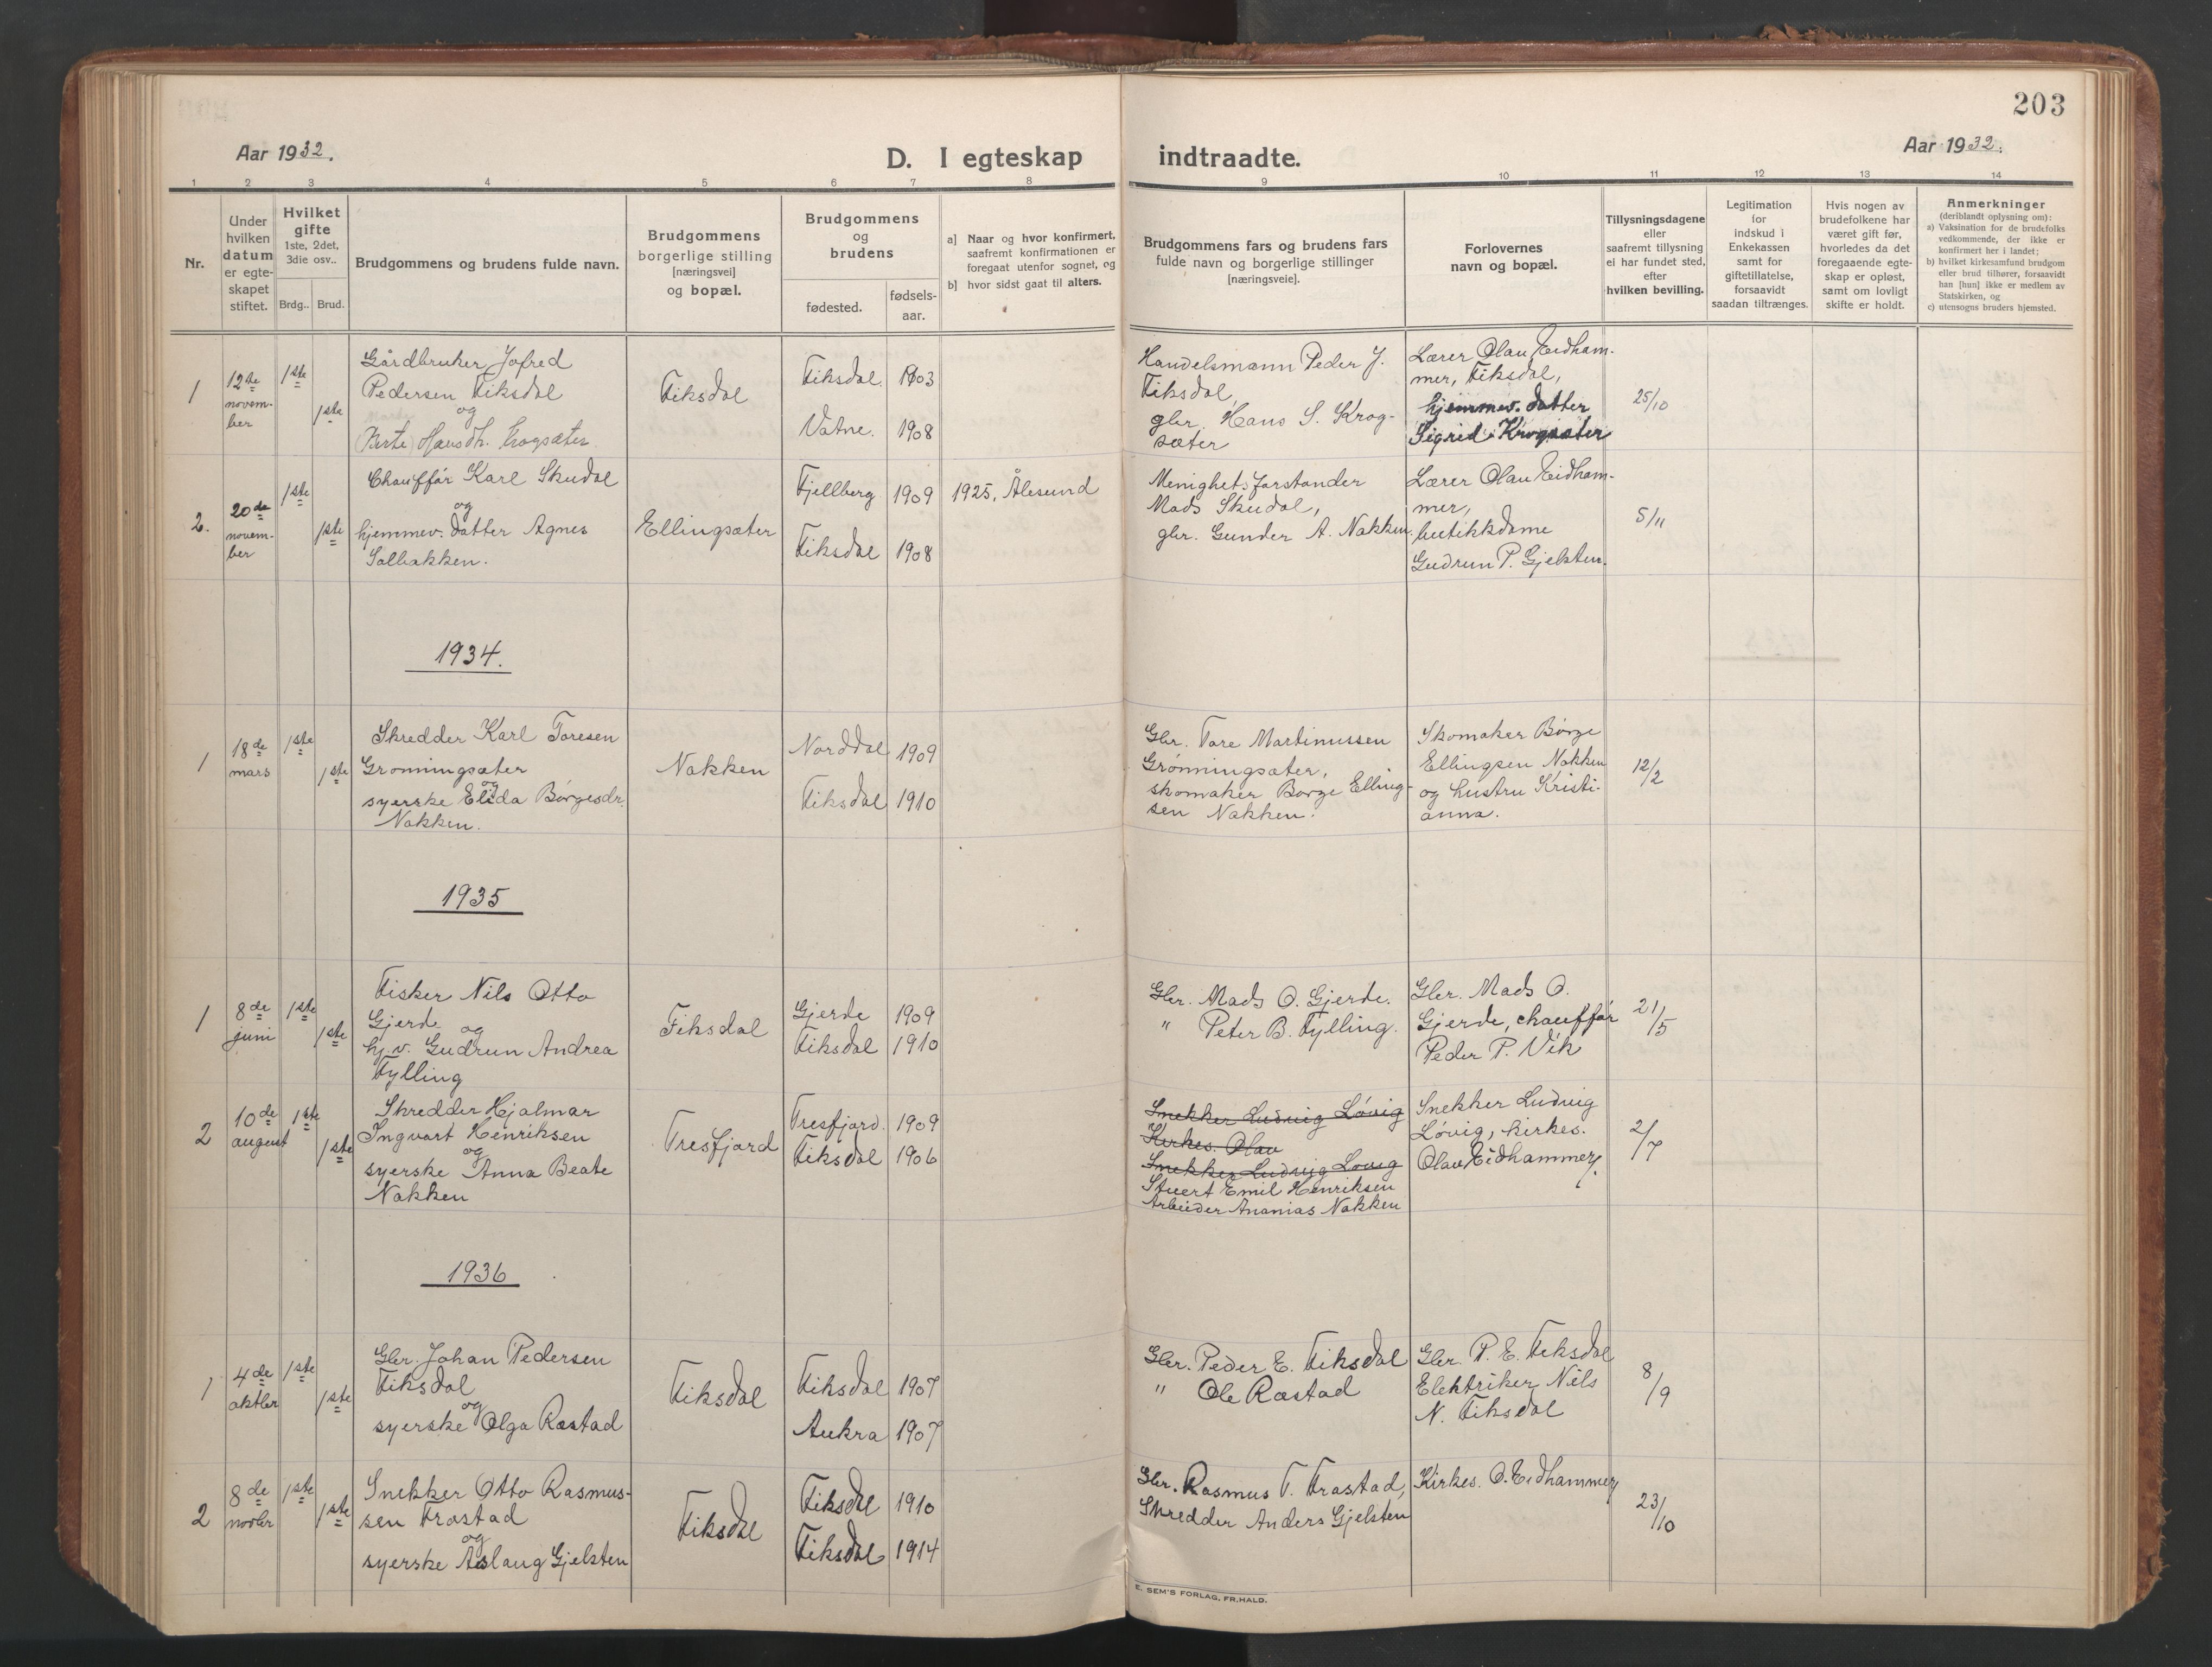 203
Aar 1932.
D. I egteskap indtraadte.
Aar 1932.
1 2 3 4 5 6 7 8 9 10 11 12 13 14
Nr.
Under
hvilken
datum
er egte-
skapet
stiftet.
Hvilket
gifte
1ste, 2det,
3die osv..
Brdg.. Brud.
Brudgommens og brudens fulde navn.
Brudgommens
borgerlige stilling
[næringsvei]
og bopæl.
Brudgommens
og
brudens
fødested.
fødsels-
aar.
a] Naar og hvor konfirmert,
saafremt konfirmationen er
foregaat utenfor sognet, og
b] hvor sidst gaat til alters.
Brudgommens fars og brudens fars
fulde navn og borgerlige stillinger
[næringsveie].
Forlovernes
navn og bopæl.
Tillysningsdagene
eller
saafremt tillysning
ei har fundet sted,
efter
hvilken bevilling.
Legitimation
for
indskud i
Enkekassen
samt for
giftetillatelse,
forsaavidt
saadan tiltrænges.
Hvis nogen av
brudefolkene har
været gift før,
hvorledes da det
foregaaende egte-
skap er opløst,
samt om lovligt
skifte er holdt.
Anmerkninger
(deriblandt oplysning om):
a) Vaksination for de brudefolks
vedkommende, der ikke er
konfirmert her i landet;
b) hvilket kirkesamfund brudgom
eller brud tilhører, forsaavidt
han [hun] ikke er medlem av
Statskirken, og
c) utensogns bruders hjemsted.
1
12te
novem-
ber
1ste
1ste
Gårdbruker Jofred
Pedersen Fiksdal
og
Berte Hansdh. Krogsæter
Fiksdal
Fiksdal. 1903
Vatne. 1908
Handelsmann Peder J.
Fiksdal,
gbr. Hans S. Krog-
sæter
Lærer Olav Eidham-
mer, Fiksdal,
hjemmev. datter
Sigrid Krogsæter
25/10
2.
20de
novem-
ber
1ste
1ste
Chauffør Karl Skudal
og
hjemmev. datter Agnes
Solbakken.
Ellingsæter
Fjellberg 1909
Fiksdal 1908
1925, Ålesund
Menighetsforstander
Mads Skudal,
gbr. Gunder A. Nakken.
Lærer Olav Eidham-
mer,
butikkdame
Gudrun P. Gjelsten.
5/11
1934.
1
18de
mars
1ste
1ste
Skredder Karl Toresen
Grønningsæter
og
syerske Elida Børgesdr.
Nakken.
Nakken
Norddal 1909
Fiksdal 1910
Gbr. Tore Martinussen
Grønningsæter,
skomaker Børge Elling-
sen Nakken.
Skomaker Børge
Ellingsen Nakken
og hustru Kristi-
anna.
12/2
1935
1
8de
juni
1ste
1ste
Fisker Nils Otto
Gjerde
og
hj.v. Gudrun Andrea
Fylling
Fiksdal
Gjerde 1909
Fiksdal 1910
Gbr. Mads O. Gjerde.
" Peter B. Fylling.
Gbr. Mads O.
Gjerde, chauffør
Peder P. Vik
21/5
2
10de
august
1ste
1ste
Skredder Hjalmar
Ingvart Henriksen
og
syerske Anna Beate
Nakken
Tresfjord
Tresfjord. 1909
Fiksdal 1906
Snekker Ludvig Løvig
Kirkes. Olav
Snekker Ludvig Løvig
Stuert Emil Henriksen
Arbeider Ananias Nakken
Snekker Ludvig
Løvig, kirkes.
Olav Eidhammer.
2/7
1936
1
4de
oktbr
1ste
1ste
Gbr. Johan Pedersen
Fiksdal
og
syerske Olga Rastad
Fiksdal
Fiksdal 1907
Aukra 1907
Gbr. Peder E. Fiksdal
" Ole Rastad
Gbr. P. E. Fiksdal
Elektriker Nils
N. Fiksdal
8/9
2
8de
novbr
1ste
1ste
Snekker Otto Rasmus-
sen Frostad
og
syerske Aslaug Gjelsten
Fiksdal
Fiksdal 1910
Fiksdal 1914
Gbr. Rasmus T. Frostad,
Skredder Anders Gjelsten
Kirkes. O. Eidhammer
23/10
E. SEM'S FORLAG, FR.HALD.